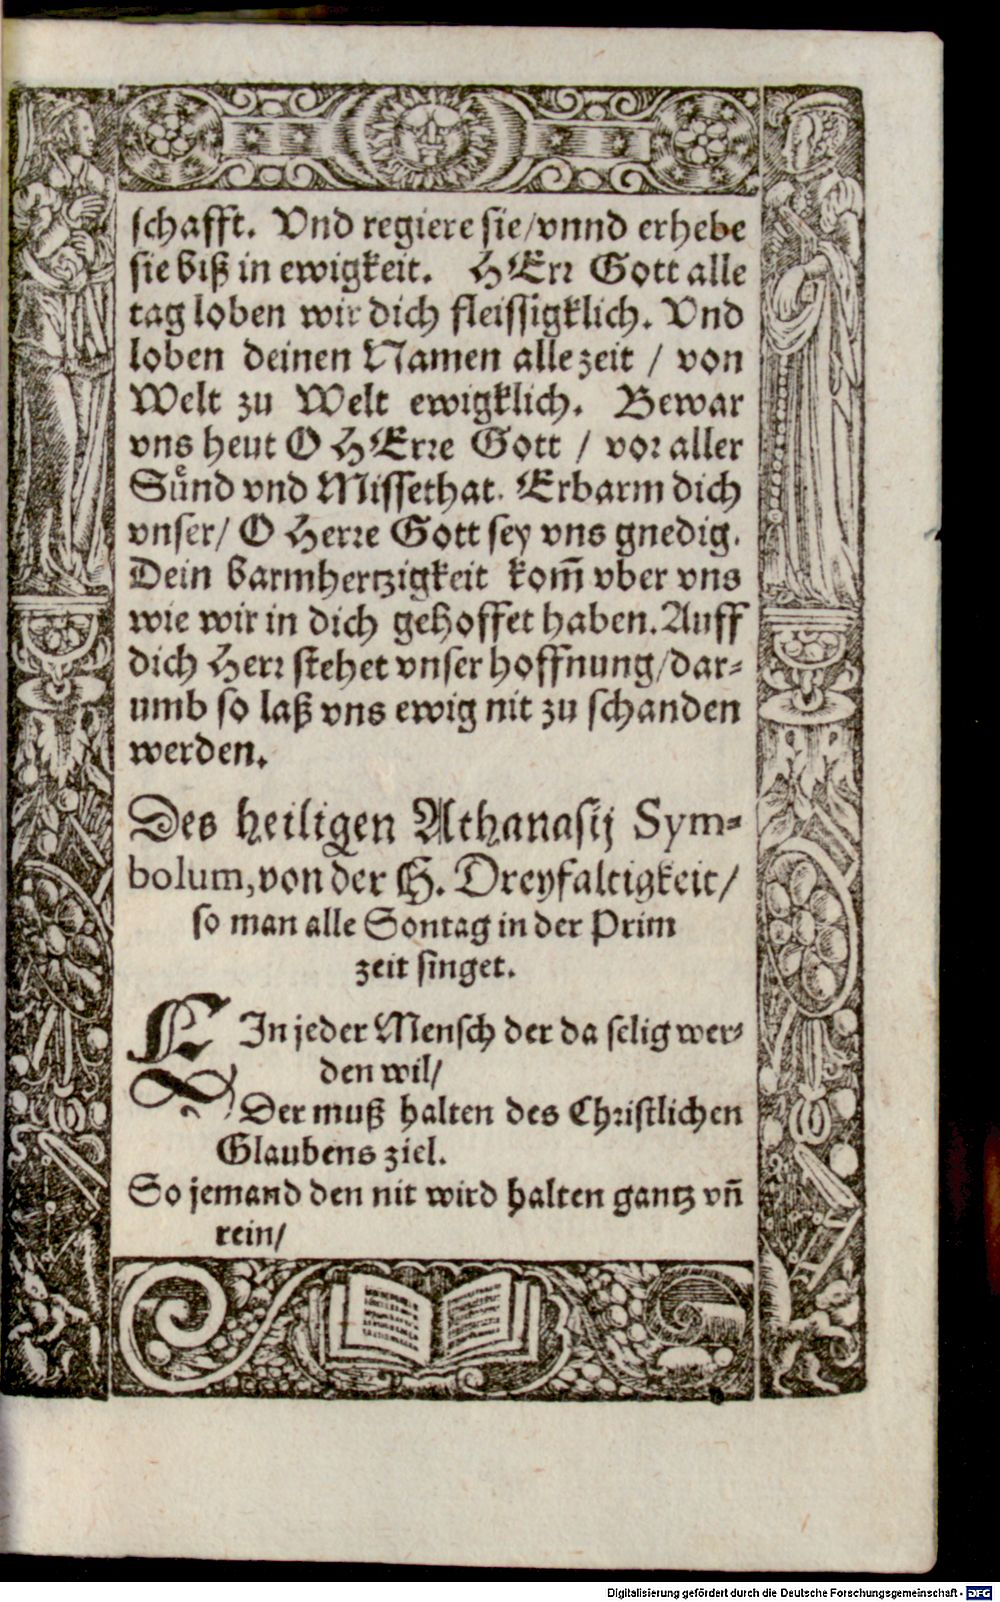 schafft. Vnd regiere sie/vnnd erhebe
sie biß in ewigkeit. HErr Gott alle
tag loben wir dich fleissigklich. Vnd
loben deinen Namen allezeit / von
Welt zu Welt ewigklich. Bewar
vns heut O HErre Gott / vor aller
Sünd vnd Missethat. Erbarm dich
vnser/ O Herre Gott sey vns gnedig.
Dein barmhertzigkeit kom̄ vber vns
wie wir in dich gehoffet haben. Auff
dich Herr stehet vnser hoffnung/dar-
umb so laß vns ewig nit zu schanden
werden.
Des heiligen Athanasij Sym-
bolum, von der H. Dreyfaltigkeit/
so man alle Sontag in der Prim
zeit singet.
EIn jeder Mensch der da selig wer-
den wil/
Der muß halten des Christlichen
Glaubens ziel.
So jemand den nit wird halten gantz vn̄
rein/
Digitalisierung gefördert durch die Deutsche Forschungsgemeinschaft - DFG